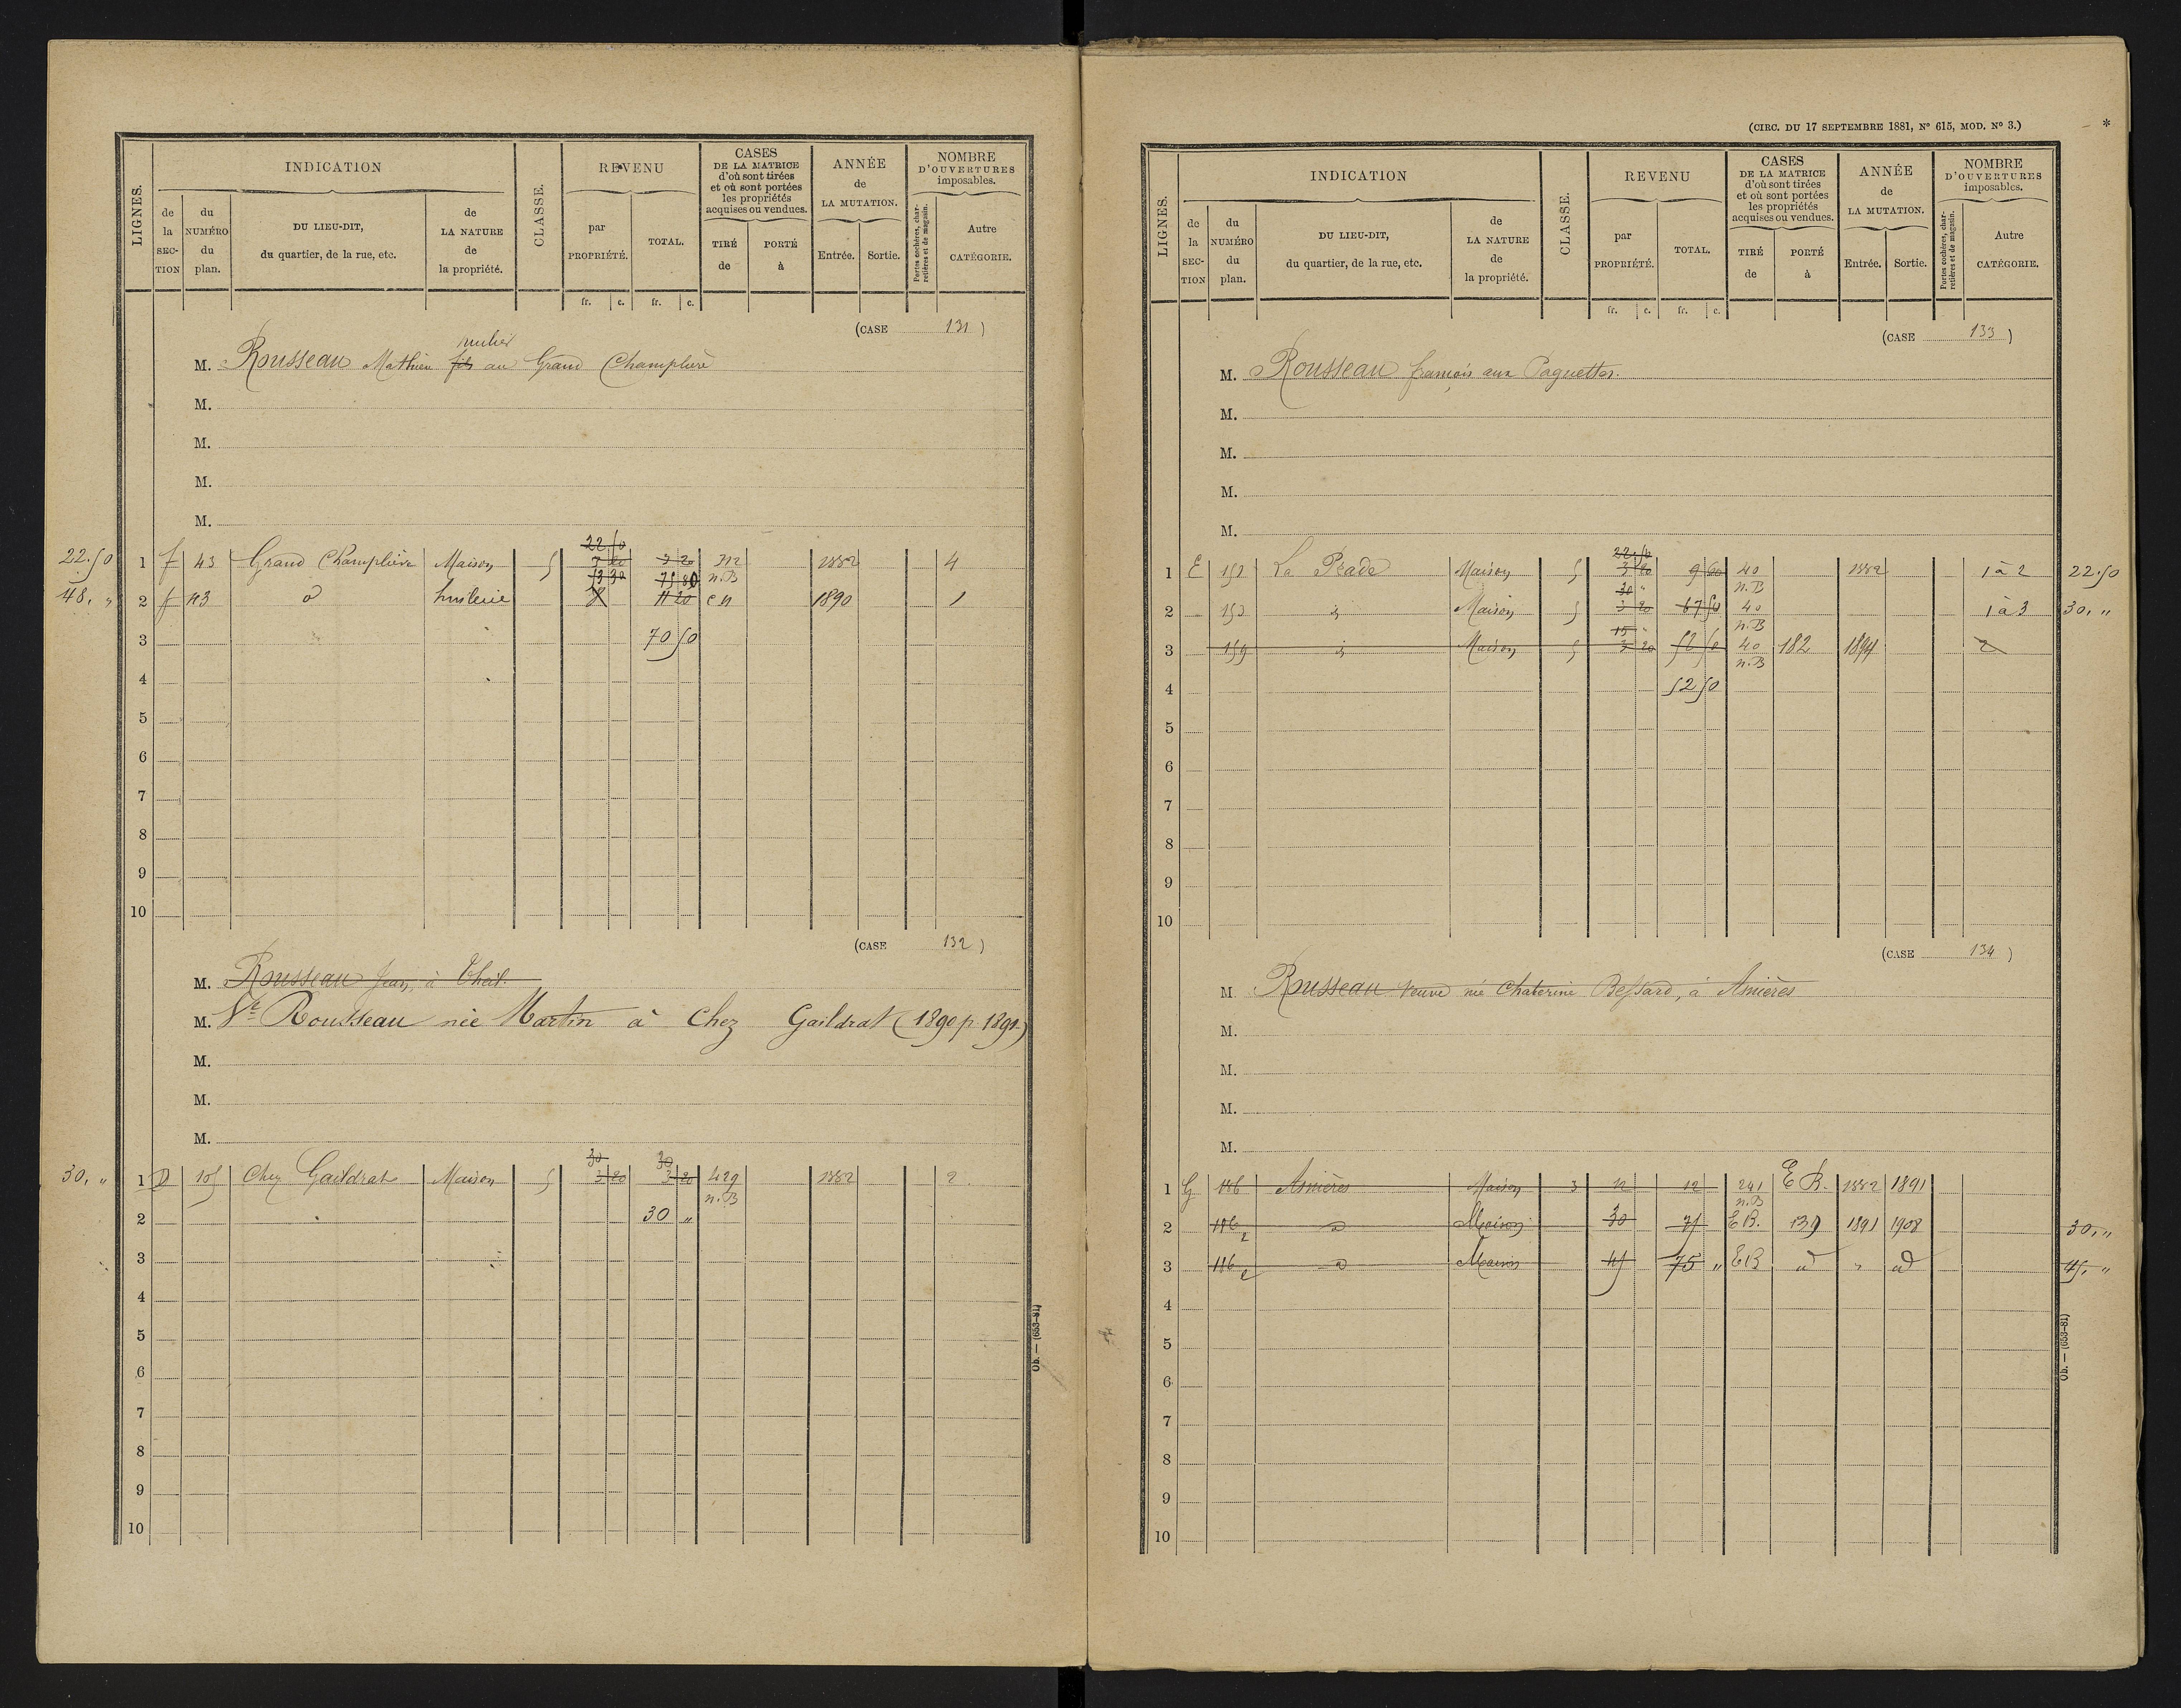 LIGNES.
INDICATION
de la SECTION
du NUMÉRO du plan.
DU LIEU-DIT, du quartier, de la rue, etc.
de LA NATURE de la propriété.
CLASSE.
REVENU
par PROPRIÉTÉ.
TOTAL.
fr. c. fr. c.
CASES DE LA MATRICE d'où sont tirées et où sont portées les propriétés acquises ou vendues.
TIRÉ de
PORTÉ à
ANNÉE de LA MUTATION.
Entrée. Sortie.
NOMBRE D'OUVERTURES imposables.
Portes cochères, charretières et de magasin.
Autre CATÉGORIE.
(CASE 131)
M. Rousseau Mathieu fils au Grand Champlière
M.
M.
M.
M.
22.50 1 f 43 Grand Champlière Maison 5 22 50 3 20 3 20 n.B 1882 4
48, " 2 f 43 d 11 20 1890 1
3 70 50
4
5
6
7
8
9
10
(CASE 132)
M. Rousseau Jean, à
M. Ve Rousseau née Martin à Chez Gaildrat (1890 p. 1891)
M.
M.
M.
30, " 1 D 105 Chez Gaildrat Maison 5 30 3 20 30 3 20 429 n.B 1882 2
2 30 "
3
4
5
6
7
8
9
10
Ob. — (653-81)
(CIRC. DU 17 SEPTEMBRE 1881, N° 615, MOD. N° 3.)
*
LIGNES.
INDICATION
de la SECTION
du NUMÉRO du plan.
DU LIEU-DIT, du quartier, de la rue, etc.
de LA NATURE de la propriété.
CLASSE.
REVENU
par PROPRIÉTÉ.
TOTAL.
fr. c. fr. c.
CASES DE LA MATRICE d'où sont tirées et où sont portées les propriétés acquises ou vendues.
TIRÉ de
PORTÉ à
ANNÉE de LA MUTATION.
Entrée. Sortie.
NOMBRE D'OUVERTURES imposables.
Portes cochères, charretières et de magasin.
Autre CATÉGORIE.
(CASE 133)
M. Rousseau françois aux Paquettes.
M.
M.
M.
M.
1 E La Prade Maison 5 22.50 3 20 9 60 40 n.B 1882 1 à 2 22.50
2 Maison 5 30 " 3 20 67 50 40 n.B 1 à 3 30, "
3 159 Maison 5 15 " 3 20 52 50 40 n.B 182 1894 2
4 52 50
5
6
7
8
9
10
(CASE 134)
M Rousseau Veuve née Chaterine Bessard, à Asnières
M.
M.
M.
M.
1 G 186 Asnières Maison 3 12 12 241 n.B E R. 1882 1891
2 186 2 d Maison 30 75 E B. 139 1891 1908 30, "
3 186 2 d Maison 45 75 " E B d " d 45, "
4
5
6
7
8
9
10
Ob. — (653-81)